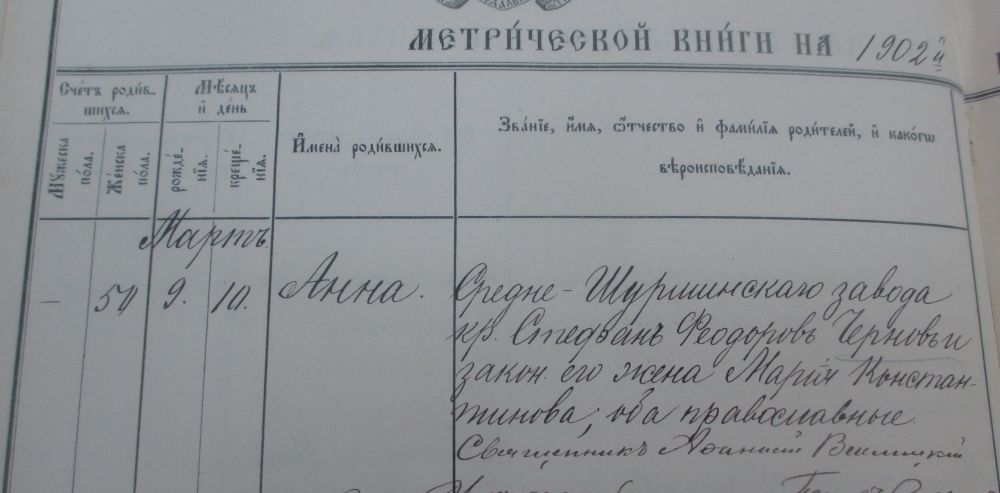 МЕТРИ́ЧЕСКОЙ КНИ́ГИ НА 1902й
Сче́тъ роди́в-
шихся.
Мѣ́сяцъ
и де́нь
Му́жеска
по́ла.
Же́нска
по́ла.
рожде́-
нїя.
креще́-
нїя.
И҆мена̀ роди́вшихся.
Зва́нїе, и҆́мя, ѻ҆́тчество и҆ фами́лїя роди́телей, и҆ како́гѡ
вѣроисповѣ́данїя.
Мартъ
— 50 9. 10. Анна. Средне-Шурминскаго завода
кр. Стефанъ Феодоровъ Черновъ и
закон. его жена Марія Констан-
тинова, оба православные.
Священникъ Аѳанасій